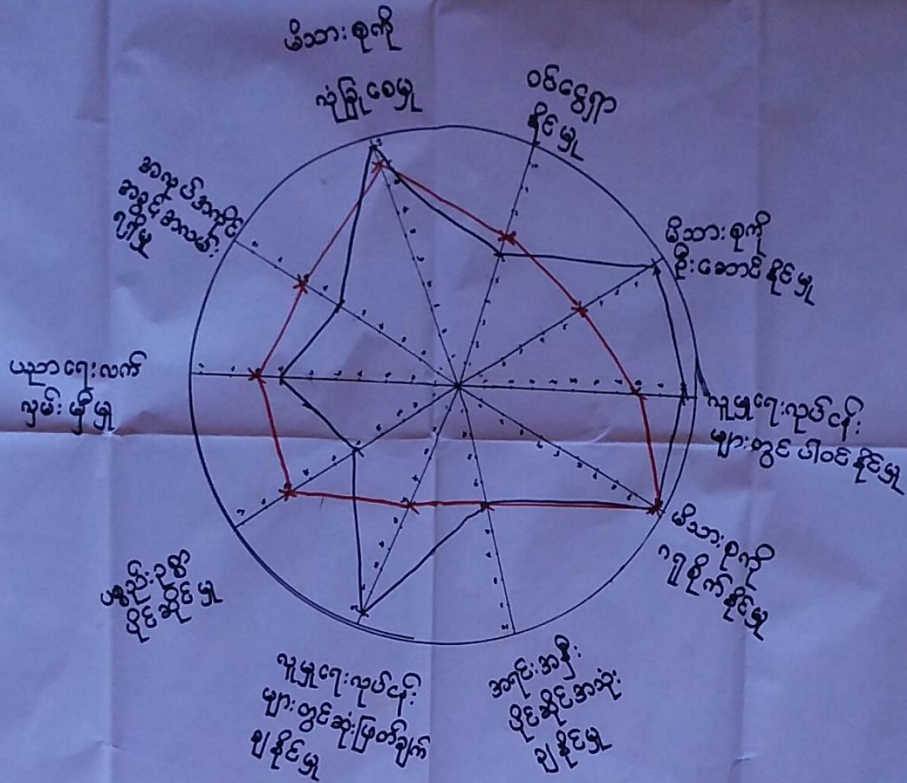 မိသားစုကို
လုံခြုံစေမှု
ဝင်ငွေရှာ
နိုင်မှု
မိသားစုကို
ဦးဆောင်နိုင်မှု
လူမှုရေးလုပ်ငန်း
များတွင်ပါဝင်နိုင်မှု
မိသားစုကို
ဂရုစိုက်နိုင်မှု
အရင်းအနှီး
ပိုင်ဆိုင်အသုံး
ချနိုင်မှု
လူမှုရေးလုပ်ငန်း
များတွင်ဆုံးဖြတ်ချက်
ချနိုင်မှု
ပစ္စည်းဥစ္စာ
ပိုင်ဆိုင်မှု
ပညာရေးလက်
လှမ်းမှီမှု
အလုပ်အကိုင်
အခွင့်အလမ်း
ရရှိမှု